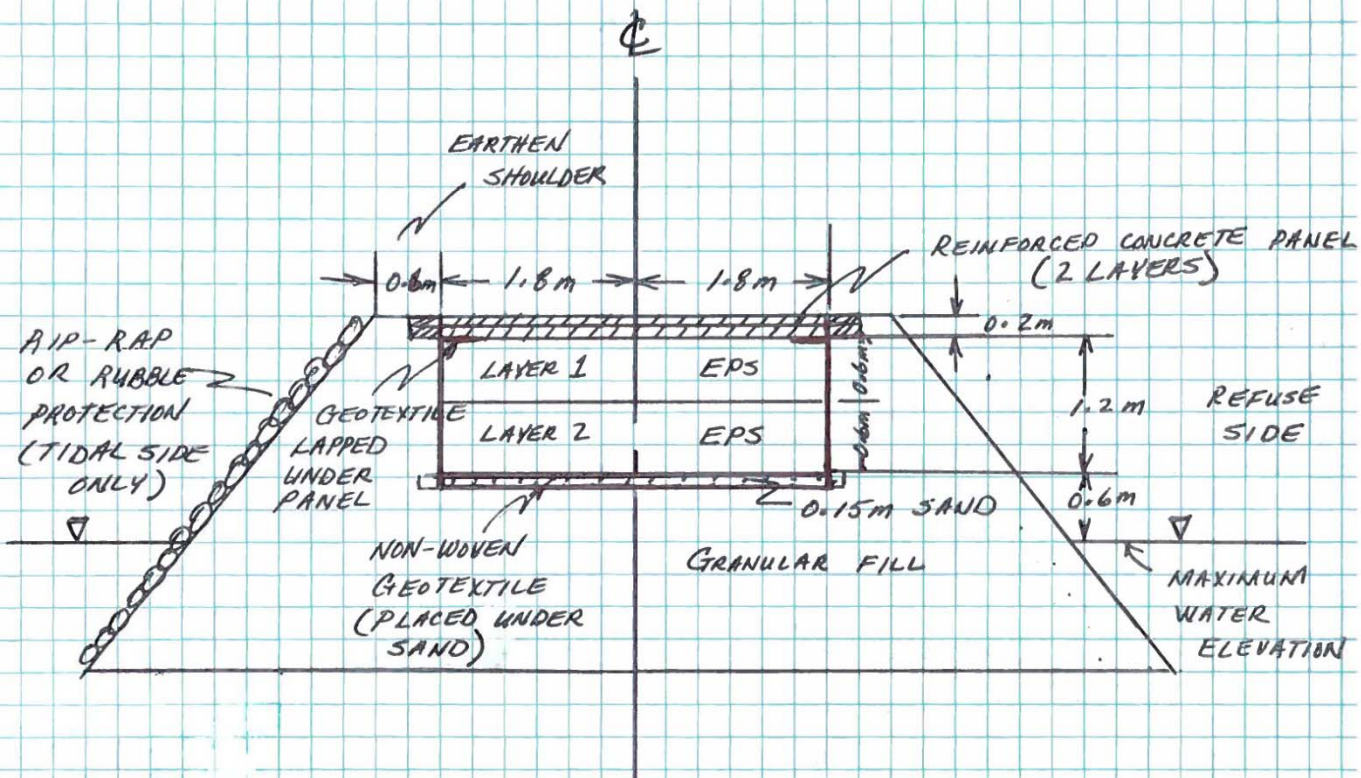 ℄
EARTHEN
SHOULDER
REINFORCED CONCRETE PANEL
(2 LAYERS)
1.8m
1.8m
0.2m
RIP-RAP
OR RUBBLE
PROTECTION
(TIDAL SIDE
ONLY)
GEOTEXTILE
LAPPED
UNDER
PANEL
LAYER 1
EPS
LAYER 2
EPS
0.6m
0.6m
1.2m
REFUSE
SIDE
0.15m SAND
0.6m
NON-WOVEN
GEOTEXTILE
(PLACED UNDER
SAND)
GRANULAR FILL
MAXIMUM
WATER
ELEVATION